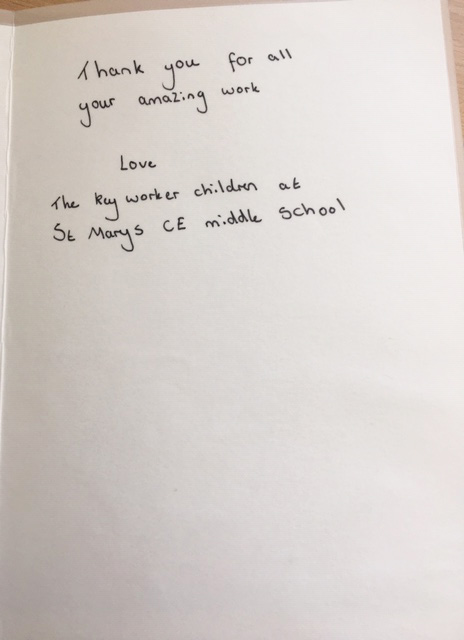 Thank you for all
your amazing work
Love
The key worker children at
St Marys CE middle school